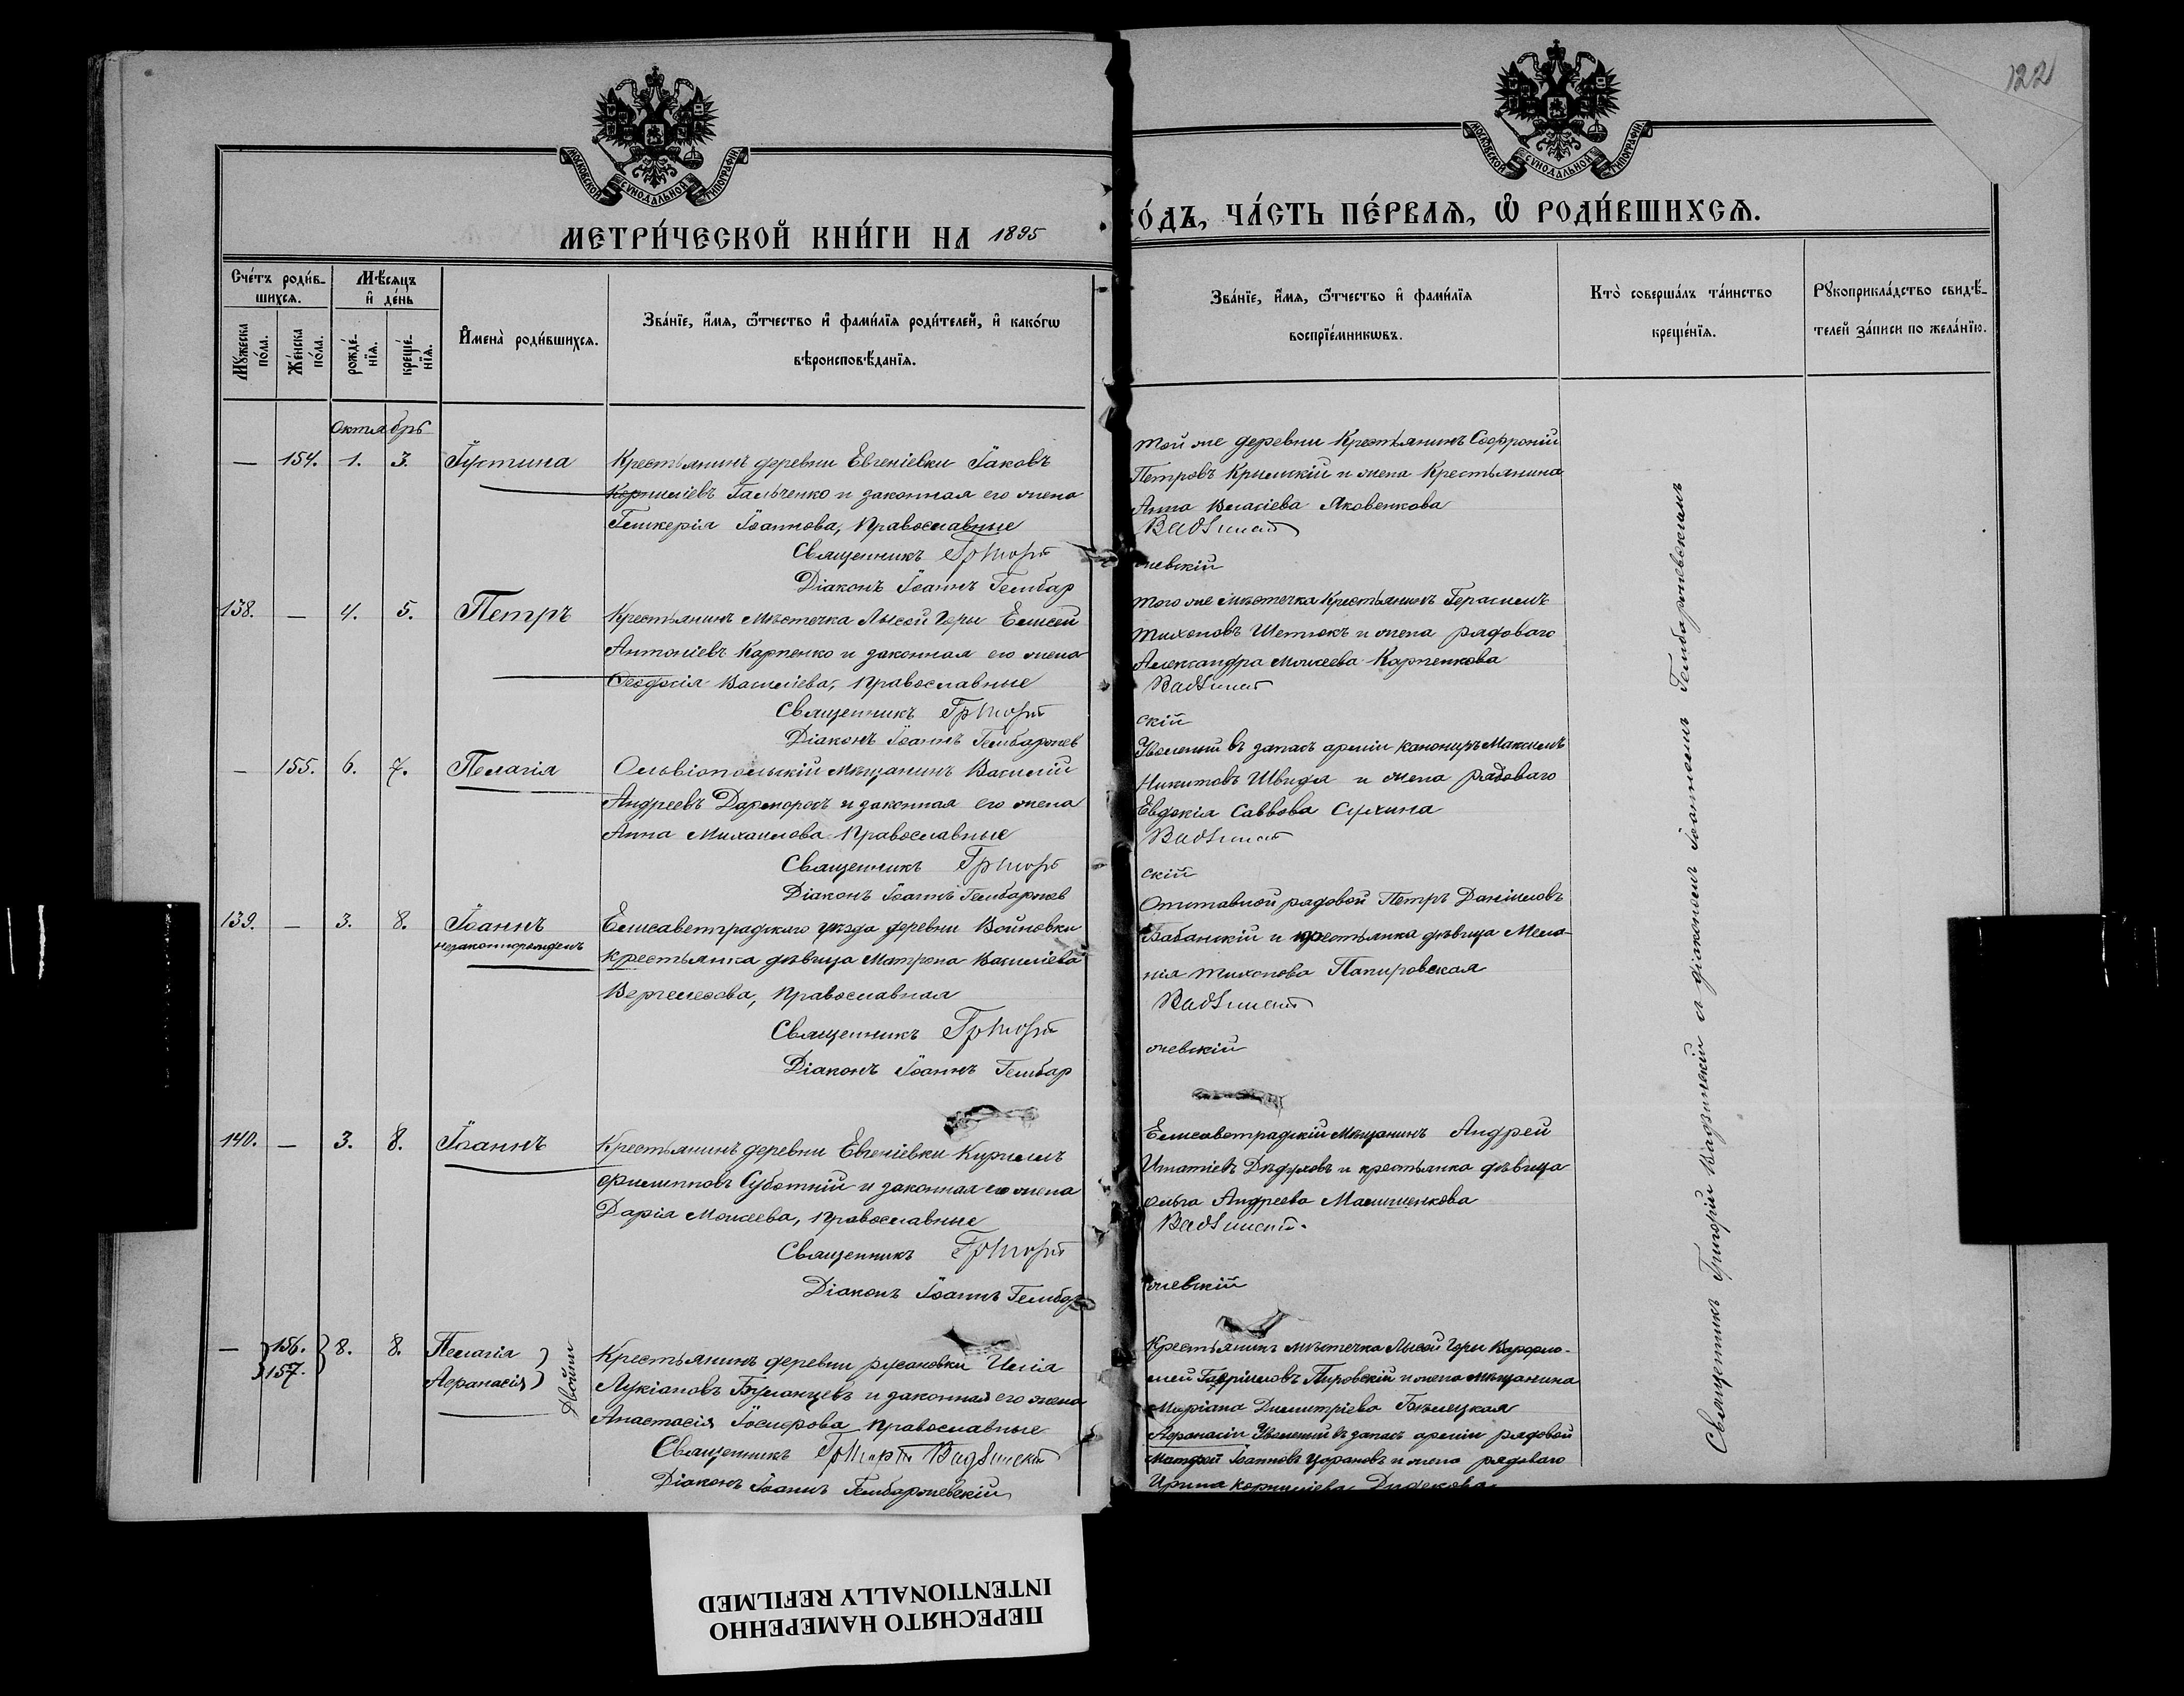 122
МОСКОВСКОЙ СУНОДАЛЬНОЙ ТИПОГРАФІИ
МОСКОВСКОЙ СУНОДАЛЬНОЙ ТИПОГРАФІИ
МЕТРИ́ЧЕСКОЙ КНИ́ГИ НА 1895
О́ДЪ, ЧА́СТЬ ПЕ́РВАѦ, Ѡ РОДИ́ВШИХСѦ.
Сче́тъ роди́в-
шихсѧ.
Мꙋжеска по́ла.
Же́нска по́ла.
Мѣ́сѧцъ
и҆ де́нь
рожде́-
нїѧ.
креще́-
нїѧ.
И҆мена̀ роди́вшихсѧ.
Зва́нїе, и҆́мѧ, ѻ҆́тчество и҆ фами́лїѧ роди́телей, и҆ како́гѡ
вѣроисповѣ́данїѧ.
Зва́нїе, и҆́мѧ, ѻ҆́тчество и҆ фами́лїѧ
воспрїе́мникѡвъ.
Кто̀ соверша́лъ та́инство
креще́нїѧ.
Рꙋкоприкла́дство свидѣ́-
телей за́писи по жела́нїю.
Октябрь
— 154. 1. 3. Іустина
Крестьянинъ деревни Евгеніевки Іаковъ
Корниліевъ Гальченко и законная его жена
Гликерія Іоаннова, Православные
Священникъ Григорій
Діаконъ Іоаннъ Гембар
Той же деревни Крестьянинъ Софроній
Петровъ Крымскій и жена Крестьянина
Анна Власіева Яковенкова
Вадзинскій
жевскій
138. — 4. 5. Петръ
Крестьянинъ Мѣстечка Лысой Горы Елисей
Антоніевъ Карпенко и законная его жена
Феодосія Василіева, Православные
Священникъ Григорій
Діаконъ Іоаннъ Гембаржев
Того же мѣстечка Крестьянинъ Герасимъ
Тихоновъ Шетюкъ и жена рядоваго
Александра Моисеева Карпенкова
Вадзинскій
скій
— 155. 6. 7. Пелагія
Ольвіопольскій мѣщанинъ Василій
Андреевъ и законная его жена
Анна Михаилова Православные
Священникъ Григорій
Діаконъ Іоаннъ Гембаржев
Уволеный въ запасъ арміи канониръ Максимъ
Никитовъ Швидя и жена рядоваго
Евдокія Саввова Сухина
Вадзинскій
скій
139. — 3. 8. Іоаннъ
незаконнорожденъ
Елисаветградскаго уѣзда деревни Войновки
Крестьянка дѣвица Матрона Василіева
Вергелесова, Православная
Священникъ Григорій
Діаконъ Іоаннъ Гембар
Отставной рядовой Петръ Даніиловъ
Бабанскій и крестьянка дѣвица Мела-
нія Тихонова Папировская
Вадзинскій
жевскій
140. — 3. 8. Іоаннъ
Крестьянинъ деревни Евгеніевки Кириллъ
Филипповъ Суботній и законная его жена
Дарія Моисеева, Православные
Священникъ Григорій
Діаконъ Іоаннъ Гембар
Елисаветградскій мѣщанинъ Андрей
Игнатіевъ Дѣдуховъ и крестьянка дѣвица
Ольга Андреева Малишенкова
Вадзинскій.
жевскій
— 156. 8. 8. Пелагія
157. Афанасія
двойни
Крестьянинъ деревни Русановки Илія
Лукіановъ Буланцевъ и законная его жена
Анастасія Іосифова Православные
Священникъ Григорій Вадзинскій
Діаконъ Іоаннъ Гембаржевскій
Крестьянинъ мѣстечка Лысой Горы Варфоло-
мей Гавріиловъ Пировскій и жена мѣщанина
Маріана Димитріева Бѣлецкая
Афанасіи Уволеный въ запасъ арміи рядовой
Матфей Іоанновъ Царановъ и жена рядоваго
Ирина Корниліева Дидекова
Священникъ Григорій Вадзинскій съ діакономъ Іоанномъ Гембаржевскимъ
ПЕРЕСНЯТО НАМЕРЕННО
INTENTIONALLY REFILMED